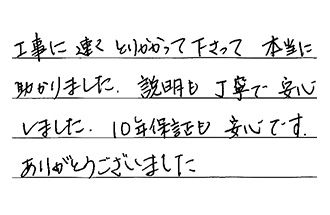 工事に速くとりかかって下さって 本当に
助かりました. 説明も丁寧で安心
しました. 10年保証も安心です.
ありがとうございました